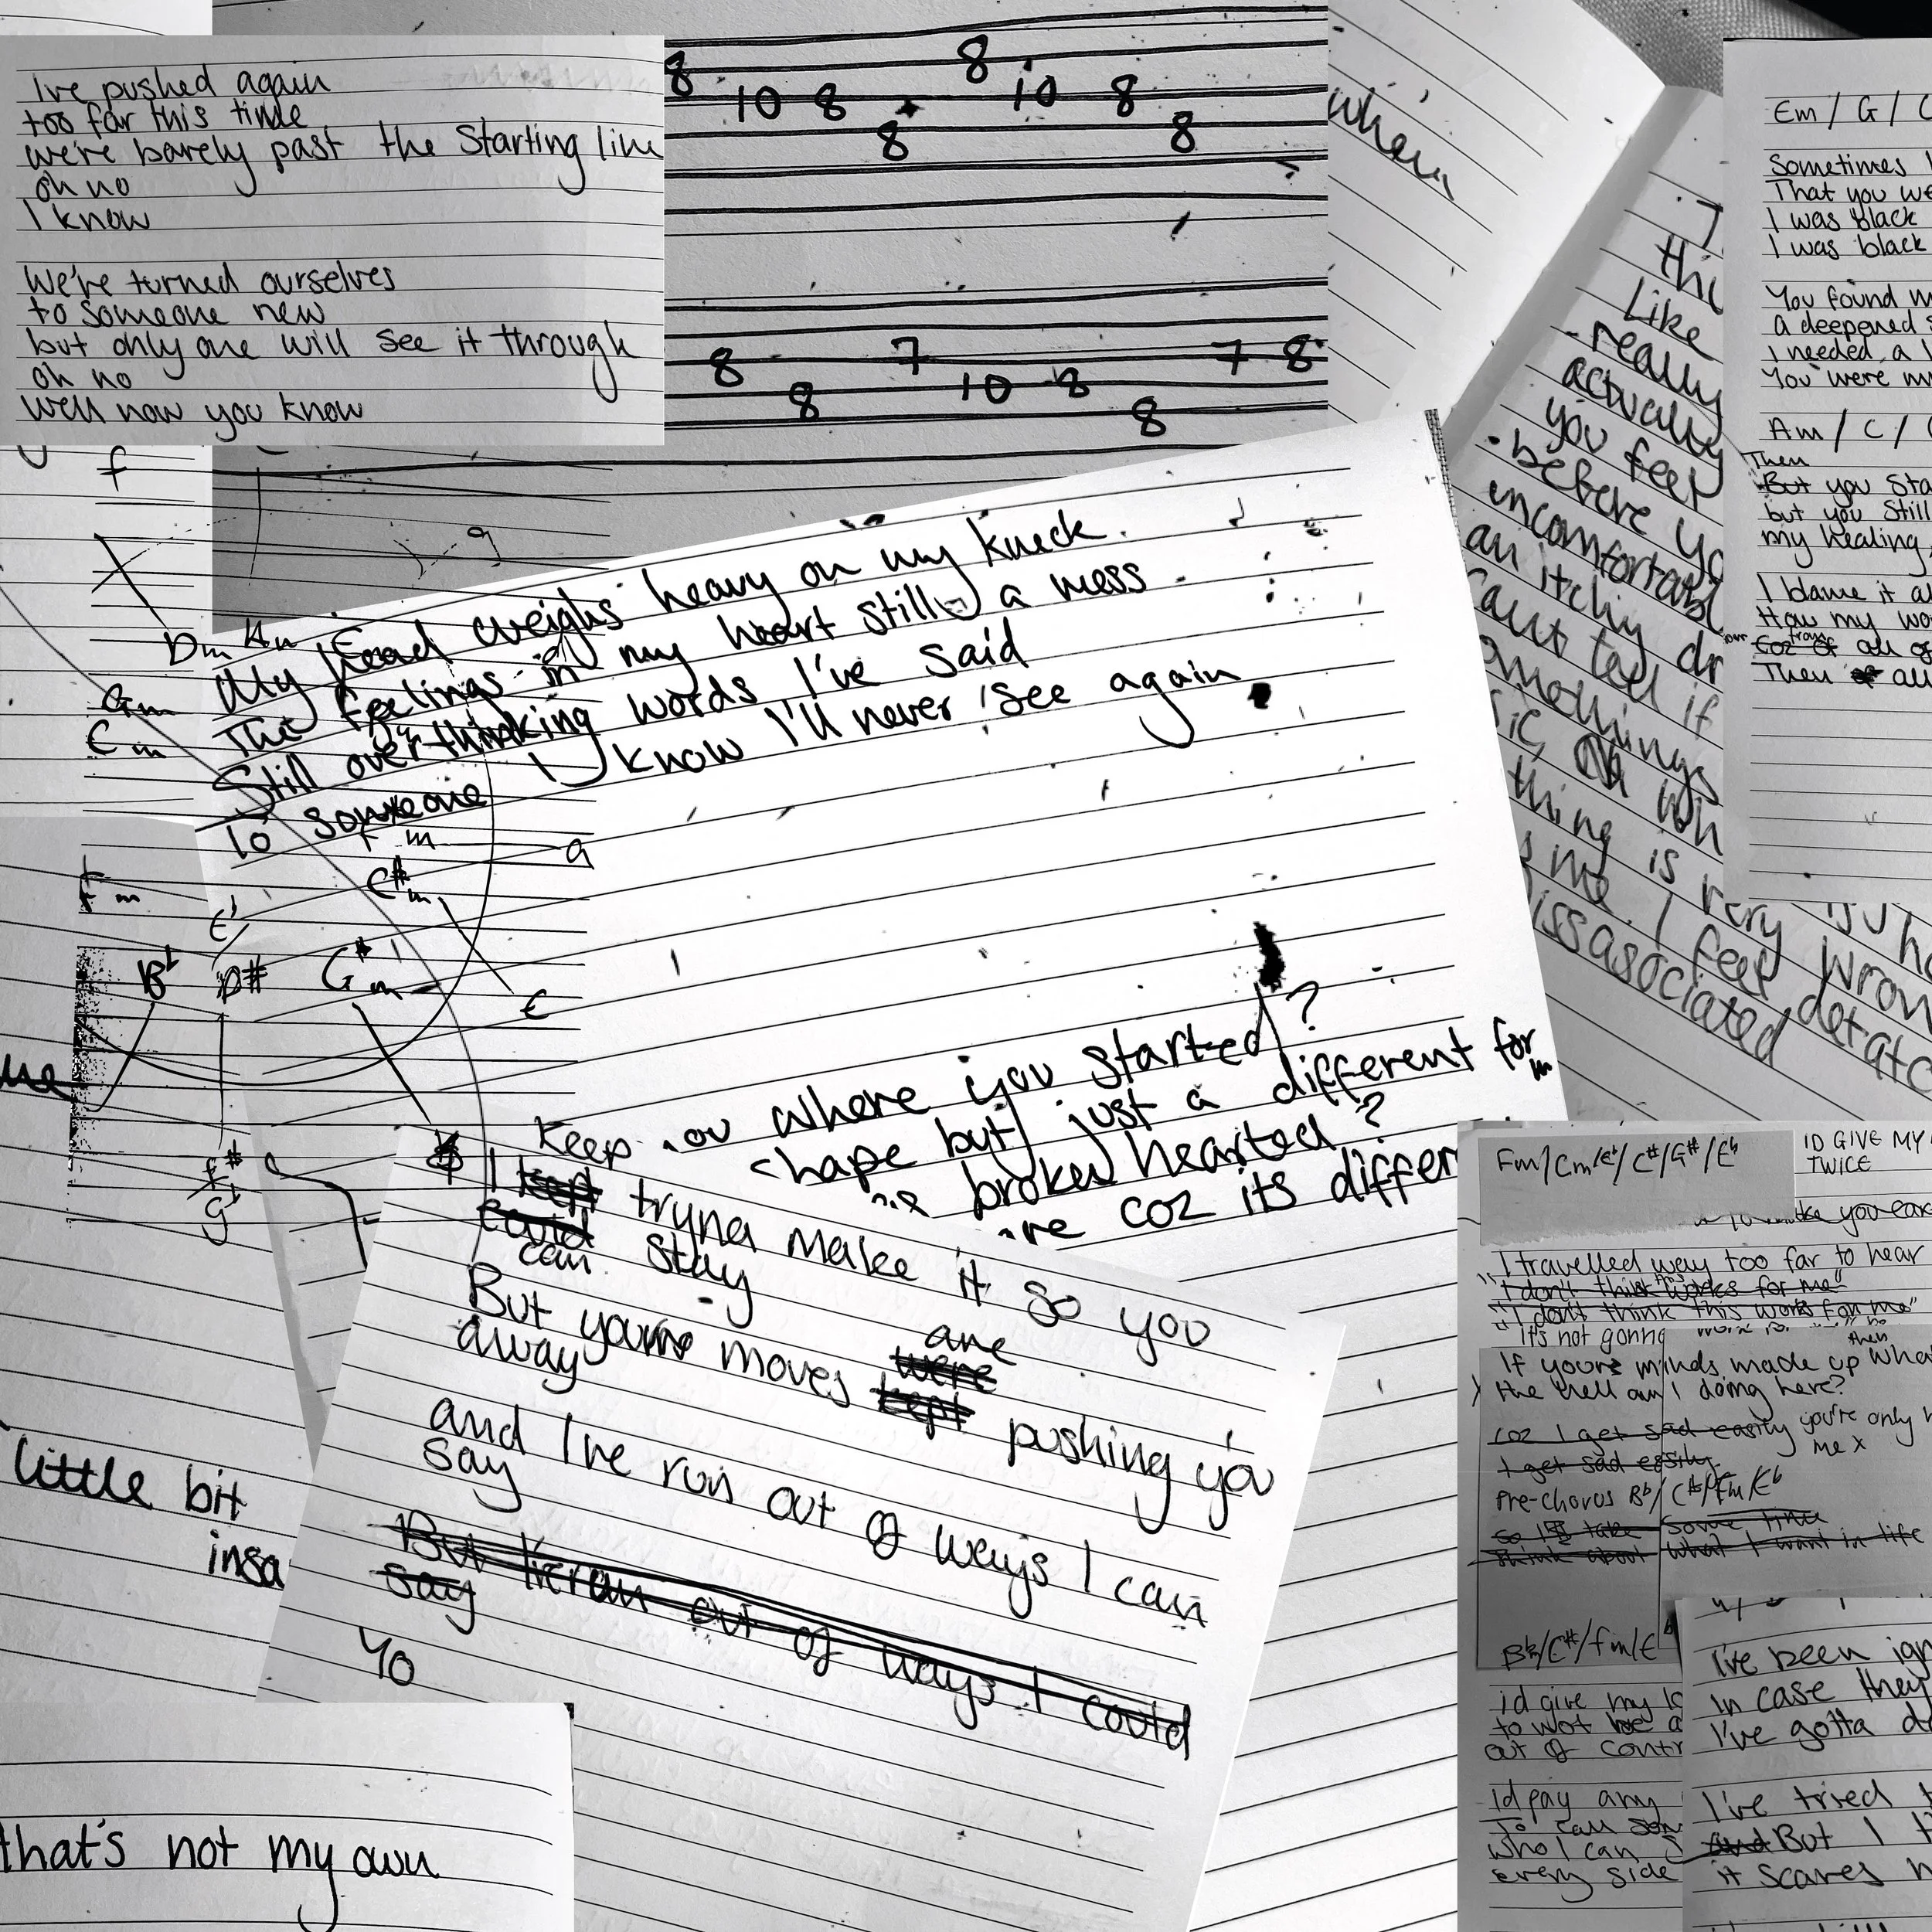 I've pushed again
too far this time
we're barely past the Starting line
oh no
I know
We're turned ourselves
to someone new
but only one will see it through
oh no
Well now you know
8 10 8 8 8 10 8 8
8 8 7 10 8 8 7 8
when
thi
Like
really
actually
you feel
before yo
uncomfortabl
an itchy dr
cant tell if
thing is very wron
me. I feel detatc
issasociated
Em / G / C
Sometimes I
That you we
I was black
I was black
You found m
a deepened s
I needed a l
You were my
Am / C / 
Then
But you sta
but you still
my healing
I blame it al
How my wo
from
coz of all of
Then of all
f
g
Dm
Am
Gm
Cm
My head weighs heavy on my kneck.
The feelings in my heart still a mess
Still overthinking words I've said
To someone I know I'll never see again
Fm
a
C#m
Fm
E♭
B♭
D#
G#m
E
f#
g♭
where you started?
hape but just a different form
broken hearted?
re coz its differ
Keep
I kept tryna make it so you
could
can stay
But your moves are
were
kept pushing you
away
and I've run out of ways I can
say
But I've ran out of ways I could
say
Yo
little bit
insa
that's not my own
Fm/Cm/E♭/C#/G#/E♭
ID GIVE MY
TWICE
I travelled way too far to hear
"I don't think this works for me"
"I don't think this works for me"
"It's not gonna
then
If your minds made up wha
the hell am I doing here?
coz I get sad easily you're only h
me x
I get sad easily
Pre-chorus B♭/C#/Fm/E♭
So I'll take some time
think about what I want in life
B♭/C#/fm/E♭
id give my lo
to not be a
out of contr
Id pay any
To call som
who I can
every side
I've been ign
in case they
I've gotta d
I've tried t
and But I t
it scares m